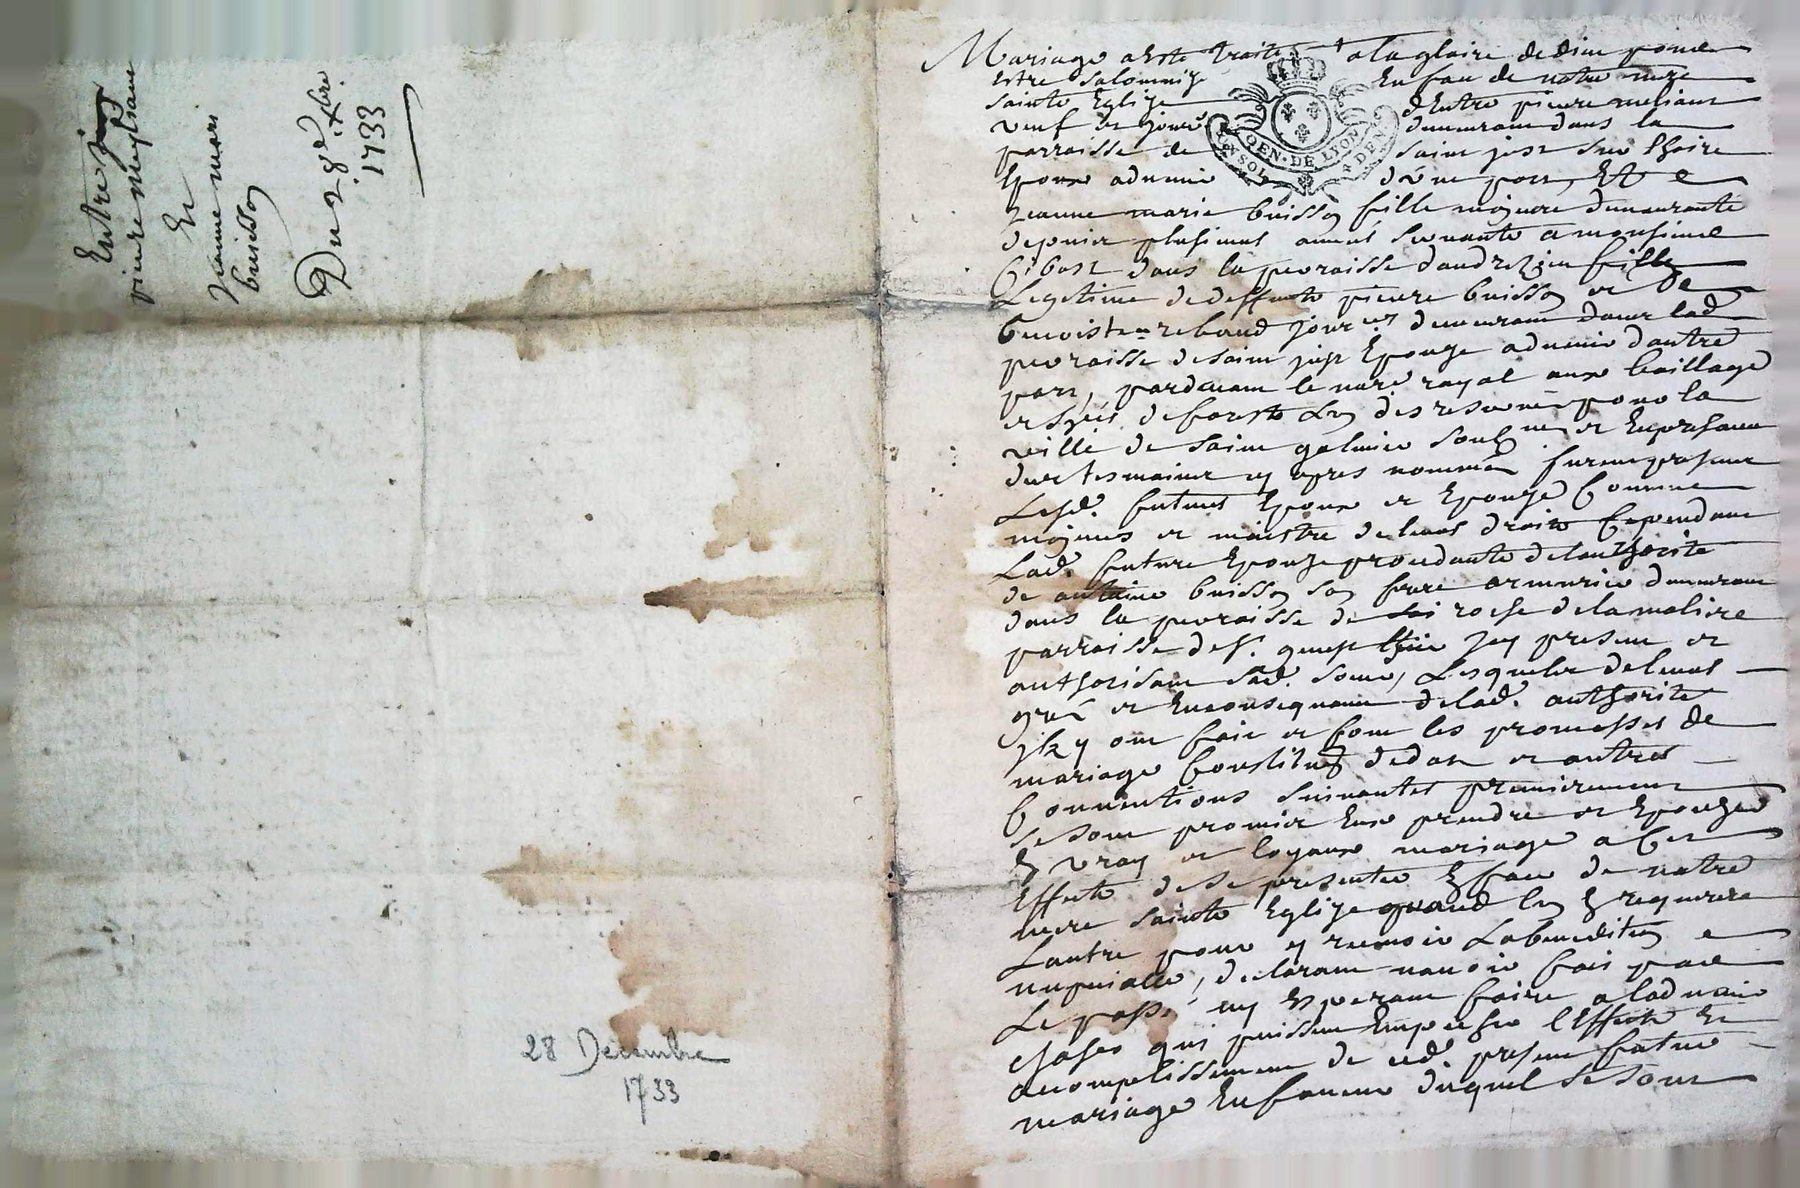 Entre
pierre megliant
Et
Jeanne mari
buisson
Du 28e Xbre
1733
28 Decembre
1733
Mariage a este traité a la gloire de dieu pour
estre salomnizé En face de notre mere
sainte Eglize d'Entre pierre meliant
veuf et jour demeurant dans la
parroisse de saint just sur Lhoire
Epoux advenir d'une part, Et
GEN. DE LYON
Jeanne marie buisson fille majeure demeurante
depuis plusieurs années servante a monsieur
Gibost dans la parroisse d'andrezieu fille
Legitime de deffunto pierre buisson et de
benoiste rebaud jour demeurant dans lad.
parroisse de saint just Epouze advenir d'autre
part, pardevant le nore royal aux baillage
de forests Les reservé pour la
ville de saint galmier soubné et En presence
des tesmoins cy apres nommés furent presents
Lesd. futurs Epoux et Epouze Comme
majeurs et maistre de leurs droits Cependant
Lad. future Epouze procedante de l'authorité
de antoine buisson son frere armurier demeurant
dans la parroisse de roche de la moliere
parroisse de St. genest Jcy present et
authorisant sad. soeur, Lesquels de leurs
gré et En consequance de lad. authorité
ont fait et font les promesses de
mariage Constitu de dot et autres
Conventions suivantes premierement
se sont promis Eux prendre et Epouzer
En vray et loyaux mariage a Cet
Effects de se presenter En face de notre
mere sainte Eglize quand l'un En requerera
L'autre pour y recevoir La benediction
nuptialle, declarant n'avoir fait par
Le passé ny Esperant faire a l'advenir
choses qui puissent Empecher l'Effects Et
acomplissement de ced. present futur
mariage En faveur duquel se sont